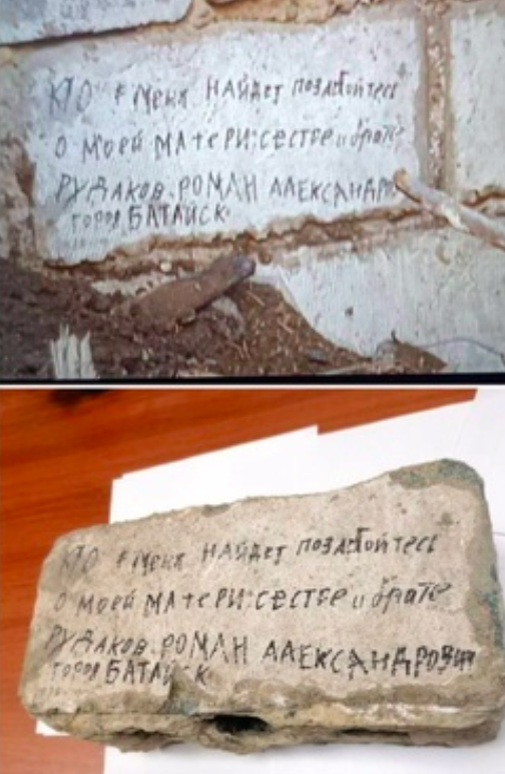 КТО меня НАЙДЕТ позаботойтесь
О моей МАТЕРИ:СЕСТРЕ и брате
РУДАКОВ.РОМАН АЛЕКСАНДРО
ГОРОД БАТАЙСК.
КТО меня НАЙДЕТ позаботойтесь
О моей МАТЕРИ:СЕСТРЕ и брате
РУДАКОВ.РОМАН ААЕКСАНДРОВИЧ
ГОРОД БАТАЙСК.